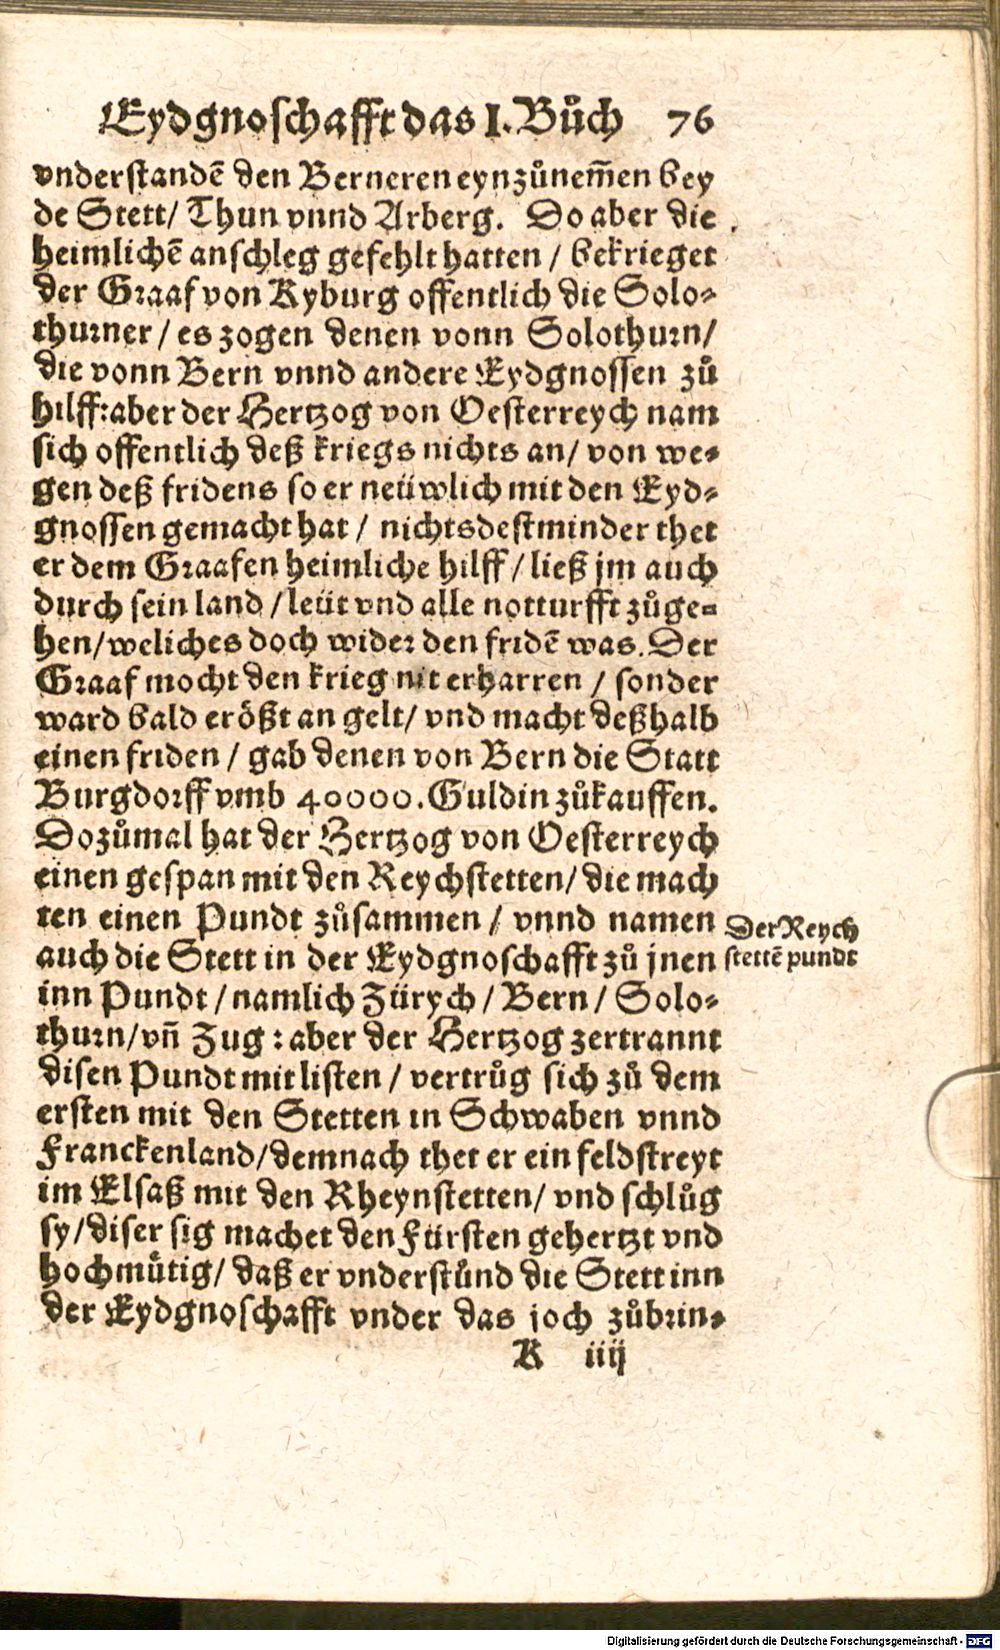 Eydgnoschafft das I. Bůch 76
vnderstandē den Berneren eynzůnem̄en bey
de Stett/ Thun vnnd Arberg. Do aber die
heimlichē anschleg gefehlt hatten / bekrieget
der Graaf von Kyburg offentlich die Solo-
thurner / es zogen denen vonn Solothurn/
die vonn Bern vnnd andere Eydgnossen zů
hilff: aber der Hertzog von Oesterreych nam
sich offentlich deß kriegs nichts an/ von we-
gen deß fridens so er neüwlich mit den Eyd-
gnossen gemacht hat / nichtsdestminder thet
er dem Graafen heimliche hilff / ließ jm auch
durch sein land / leüt vnd alle notturfft zůge-
hen/ weliches doch wider den fridē was. Der
Graaf mocht den krieg nit erharren / sonder
ward bald erößt an gelt/ vnd macht deßhalb
einen friden / gab denen von Bern die Statt
Burgdorff vmb 40000. Guldin zůkauffen.
Dozůmal hat der Hertzog von Oesterreych
einen gespan mit den Reychstetten/ die mach
ten einen Pundt zůsammen / vnnd namen
Der Reych
auch die Stett in der Eydgnoschafft zů jnen
stettē pundt
inn Pundt / namlich Zürych / Bern / Solo-
thurn/ vn̄ Zug : aber der Hertzog zertrannt
disen Pundt mit listen / vertrůg sich zů dem
ersten mit den Stetten in Schwaben vnnd
Franckenland/ demnach thet er ein feldstreyt
im Elsaß mit den Rheynstetten/ vnd schlůg
sy/ diser sig machet den Fürsten gehertzt vnd
hochmůtig/ daß er vnderstůnd die Stett inn
der Eydgnoschafft vnder das joch zůbrin-
K iiij
Digitalisierung gefördert durch die Deutsche Forschungsgemeinschaft - DFG